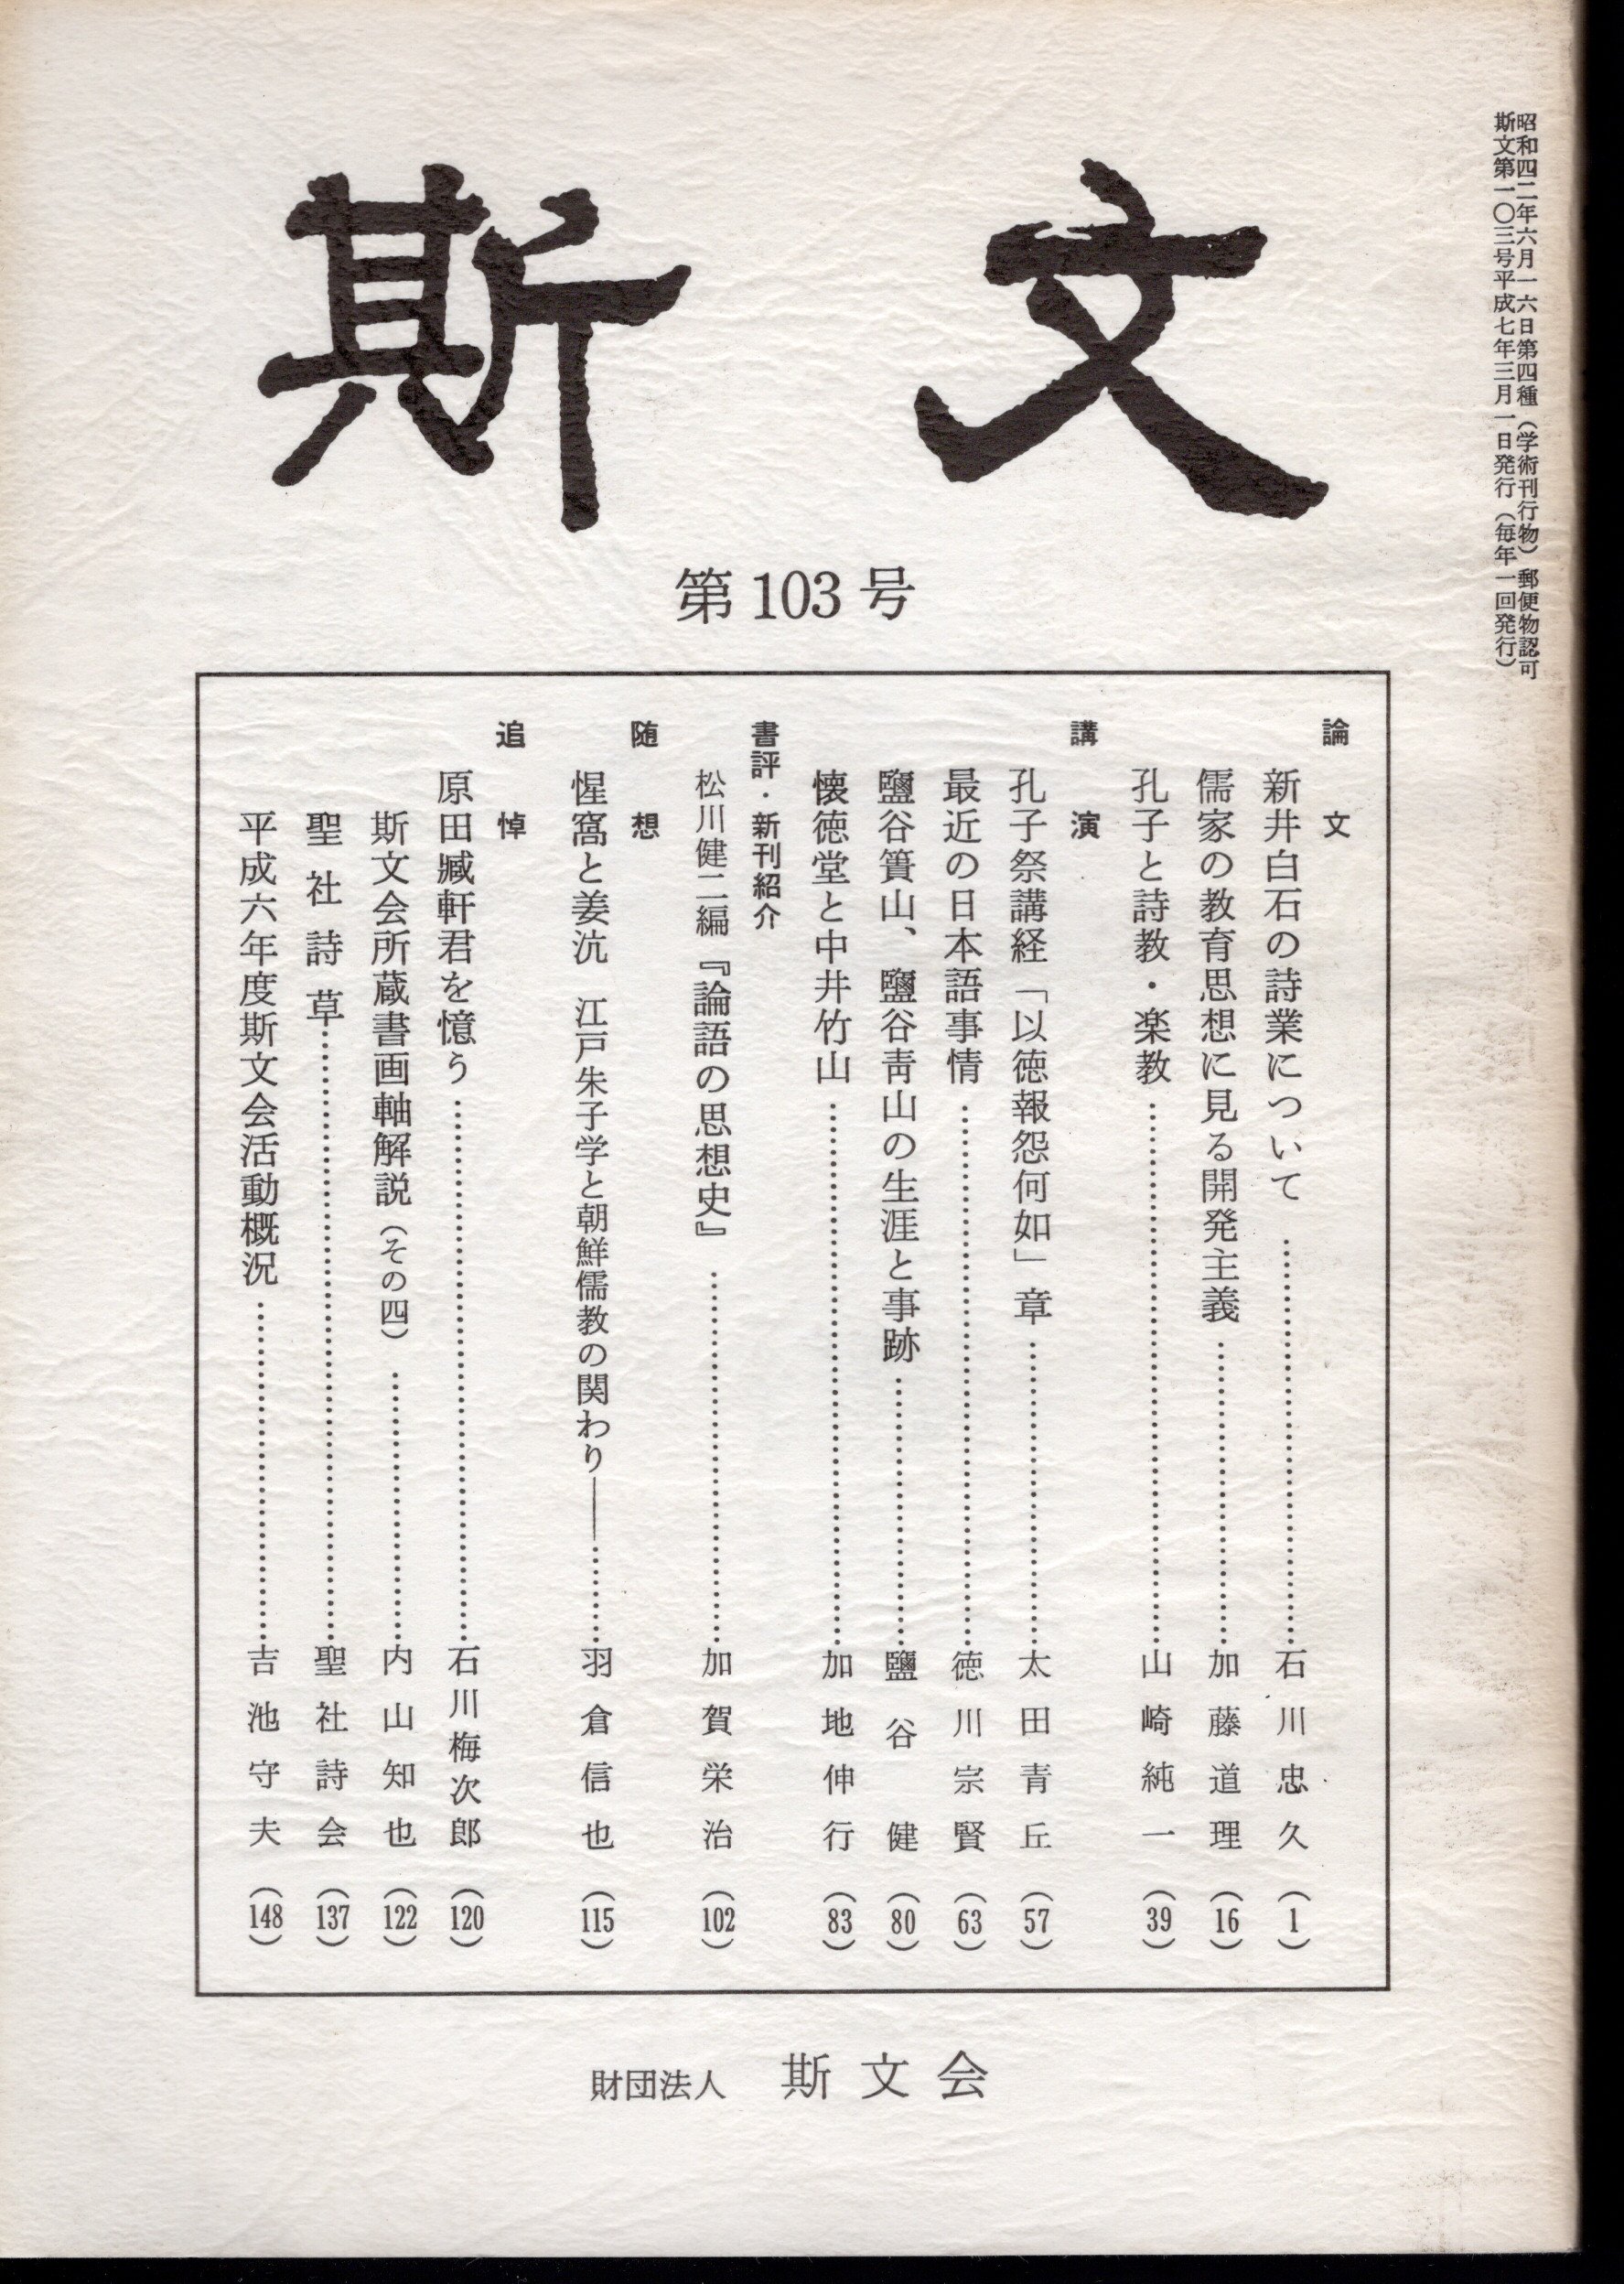 昭和四二年六月一六日第四種（学術刊行物）郵便物認可
斯文第一〇三号平成七年三月一日発行（毎年一回発行）
斯文
第103号
論文
新井白石の詩業について……石川忠久（1）
儒家の教育思想に見る開発主義……加藤道理（16）
孔子と詩教・楽教……山崎純一（39）
講演
孔子祭講経「以徳報怨何如」章……太田青丘（57）
最近の日本語事情……徳川宗賢（63）
鹽谷簣山、鹽谷青山の生涯と事跡……鹽谷健（80）
懐徳堂と中井竹山……加地伸行（83）
書評・新刊紹介
松川健二編『論語の思想史』……加賀栄治（102）
随想
惺窩と姜沆　江戸朱子学と朝鮮儒教の関わり――……羽倉信也（115）
追悼
原田臧軒君を憶う……石川梅次郎（120）
斯文会所蔵書画軸解説（その四）……内山知也（122）
聖社詩草……聖社詩会（137）
平成六年度斯文会活動概況……吉池守夫（148）
財団法人　斯文会